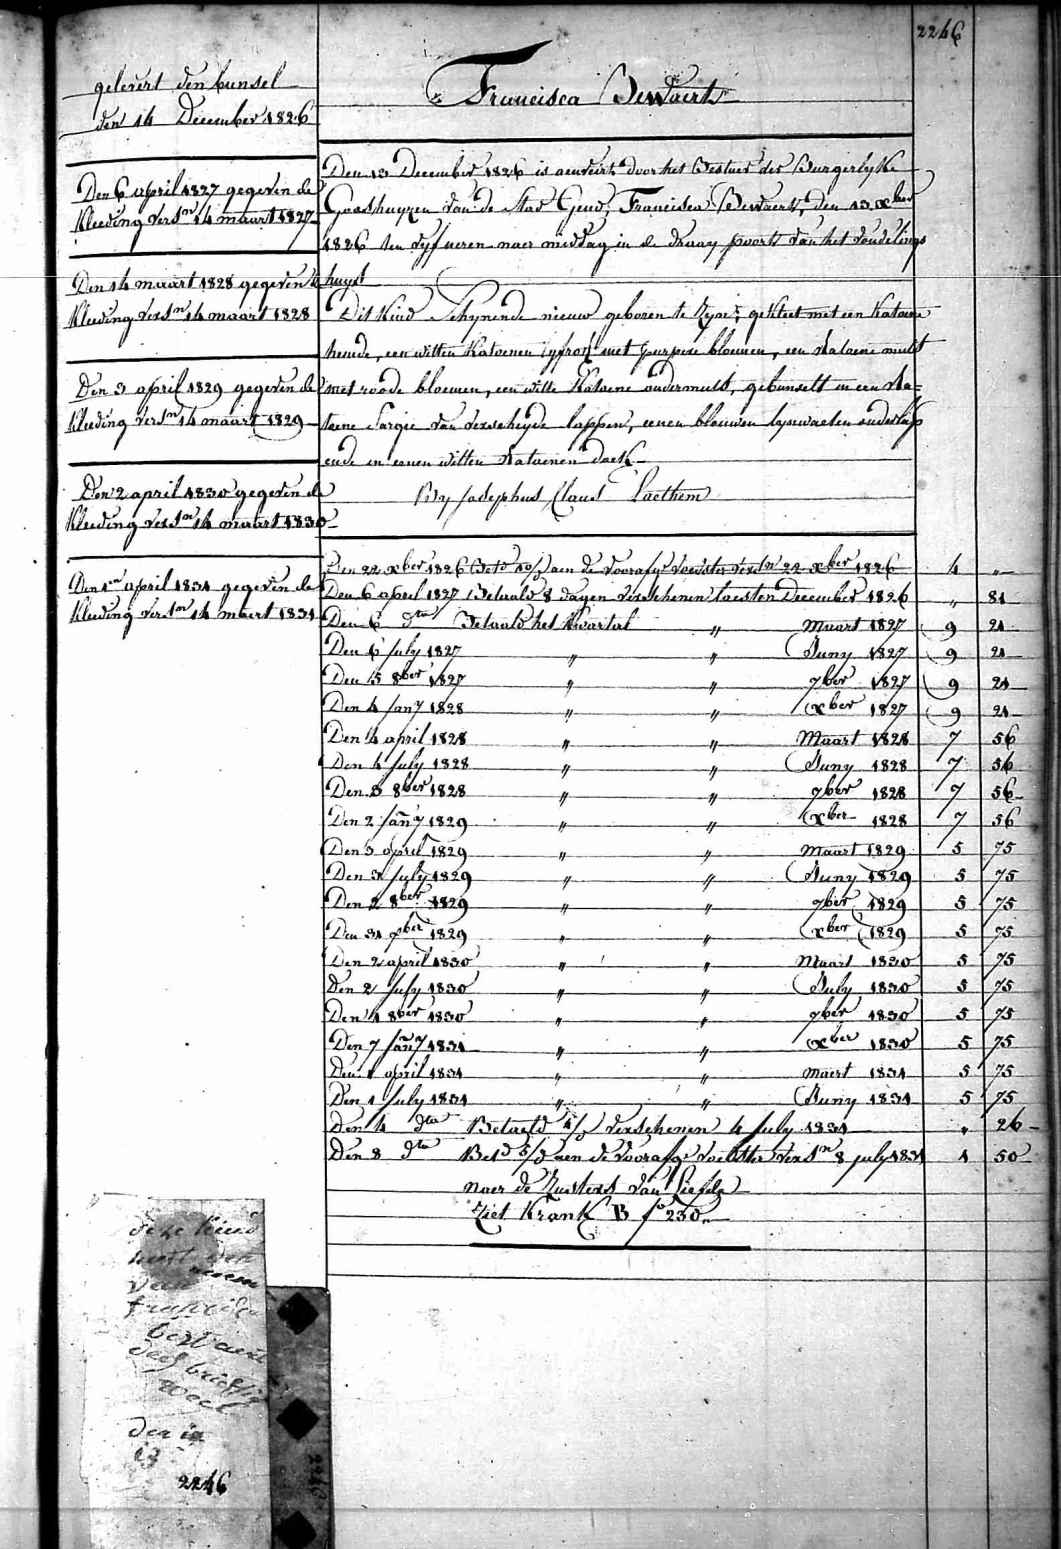 2246
gelevert den bunsel
den 14 December 1826
Francisca Bewaerts
Den 6 april 1827 gegeven de
Kleeding vers.n 14 maart 1827
Den 14 maart 1828 gegeven de
Kleeding vers.n 14 maart 1828
Den 3 april 1829 gegeven de
Kleeding vers.n 14 maart 1829
Den 2 april 1830 gegeven de
Kleeding vers.n 14 maart 1830
Den 1en april 1831 gegeven de
Kleeding vers.n 14 maart 1831
Den 13 December 1826 is aenveirt door het Bestuer der Burgerlyke
Godshuyzen van de Stad Gend, Francisca Bewaerts, den 13 xber
1826 ten vyf ueren naer middag in de draay poorte van het vondelings
huys
Dit Kind schynende nieuw geboren te zyn, gekleet met een Katoene
hemde, een witten Katoenen lyfrok met purpere bloemen, een Katoene muts
met roode bloemen, een witte Katoene ondermuts, gebunselt in een Ka=
toene Sargie van verscheyde lappen, eenen blauwen lynwaeten onderlap
ende in eenen witten Katoenen doek
By Josephus Claus Laethem
Den 22 xber 1826 Bet.d aen de voorafge voedster versn 22 xber 1826 4 "
Den 6 april 1827 Betaald 8 dagen verschenen laesten December 1826 " 81
Den 6 dto Betaald het Kwartal " Maart 1827 9 21
Den 6 July 1827 " " Juny 1827 9 21
Den 5 8ber 1827 " " 7ber 1827 9 21
Den 4 Jany 1828 " " xber 1827 9 21
Den 4 april 1828 " " Maart 1828 7 56
Den 4 July 1828 " " Juny 1828 7 56
Den 3 8ber 1828 " " 7ber 1828 7 56
Den 2 Jany 1829 " " xber 1828 7 56
Den 3 april 1829 " " Maart 1829 5 75
Den 3 July 1829 " " Juny 1829 5 75
Den 2 8ber 1829 " " 7ber 1829 5 75
Den 31 xber 1829 " " xber 1829 5 75
Den 2 april 1830 " " Maart 1830 5 75
Den 2 July 1830 " " July 1830 5 75
Den 1 8ber 1830 " " 7ber 1830 5 75
Den 7 Jany 1831 " " xber 1830 5 75
Den 1 april 1831 " " Maert 1831 5 75
Den 1 July 1831 " " Juny 1831 5 75
Den 4 dto Betaeld verschenen 4 July 1831 " 26
Den 8 dto Betd aen de voorafge voedster versn 8 july 1831 1 50
naer de Zusters van Liefde
Ziet Krank B fo 230
deze kind
francisca
bertaert
den
13
2246